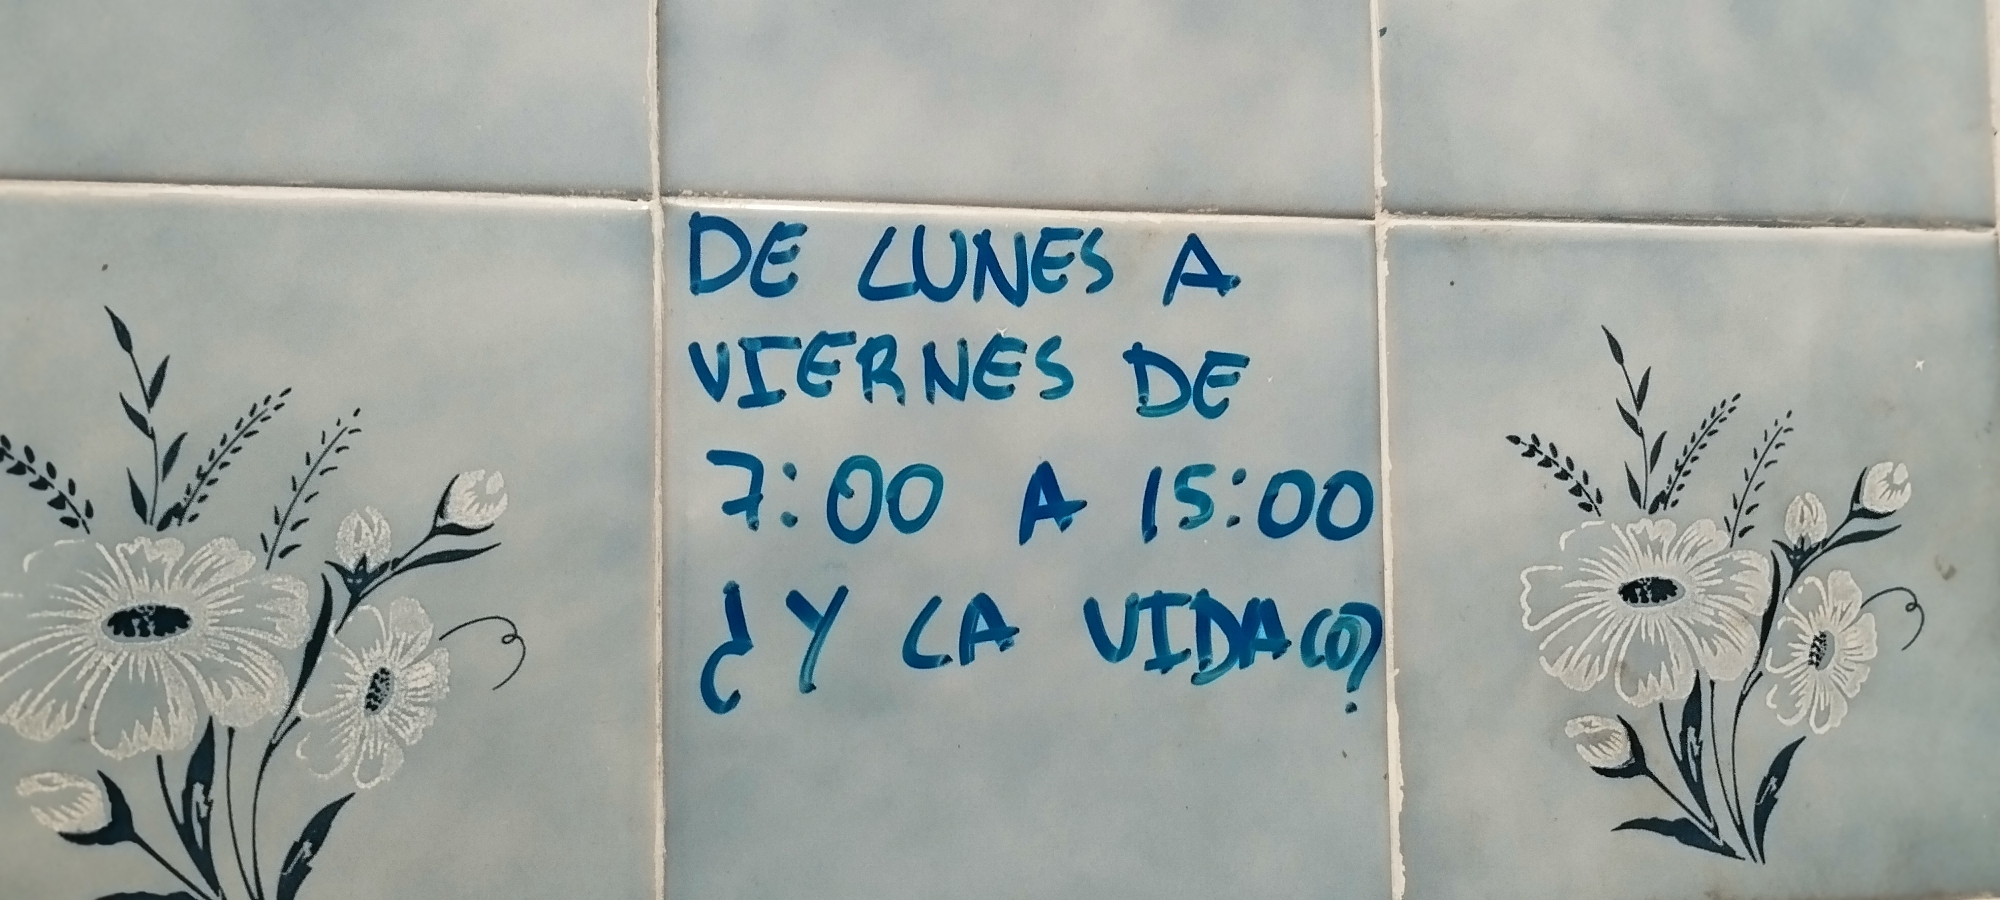 DE LUNES A
VIERNES DE
7:00 A 15:00
¿Y LA VIDA(O)?